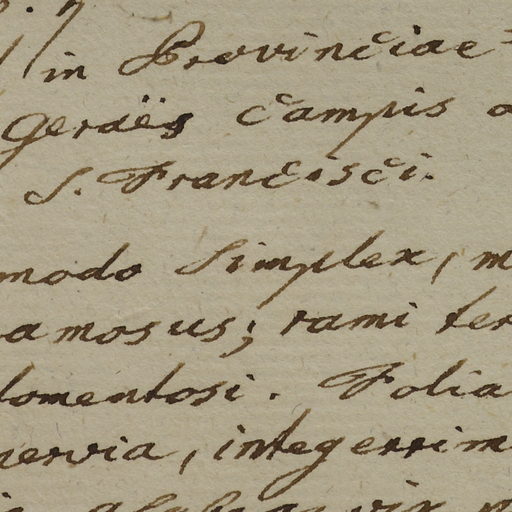 in Provinciae
Geraës campis
S. Francisci.
modo simplex, m
amosus; rami ter
tomentosi. Folia
nervia, integerrim